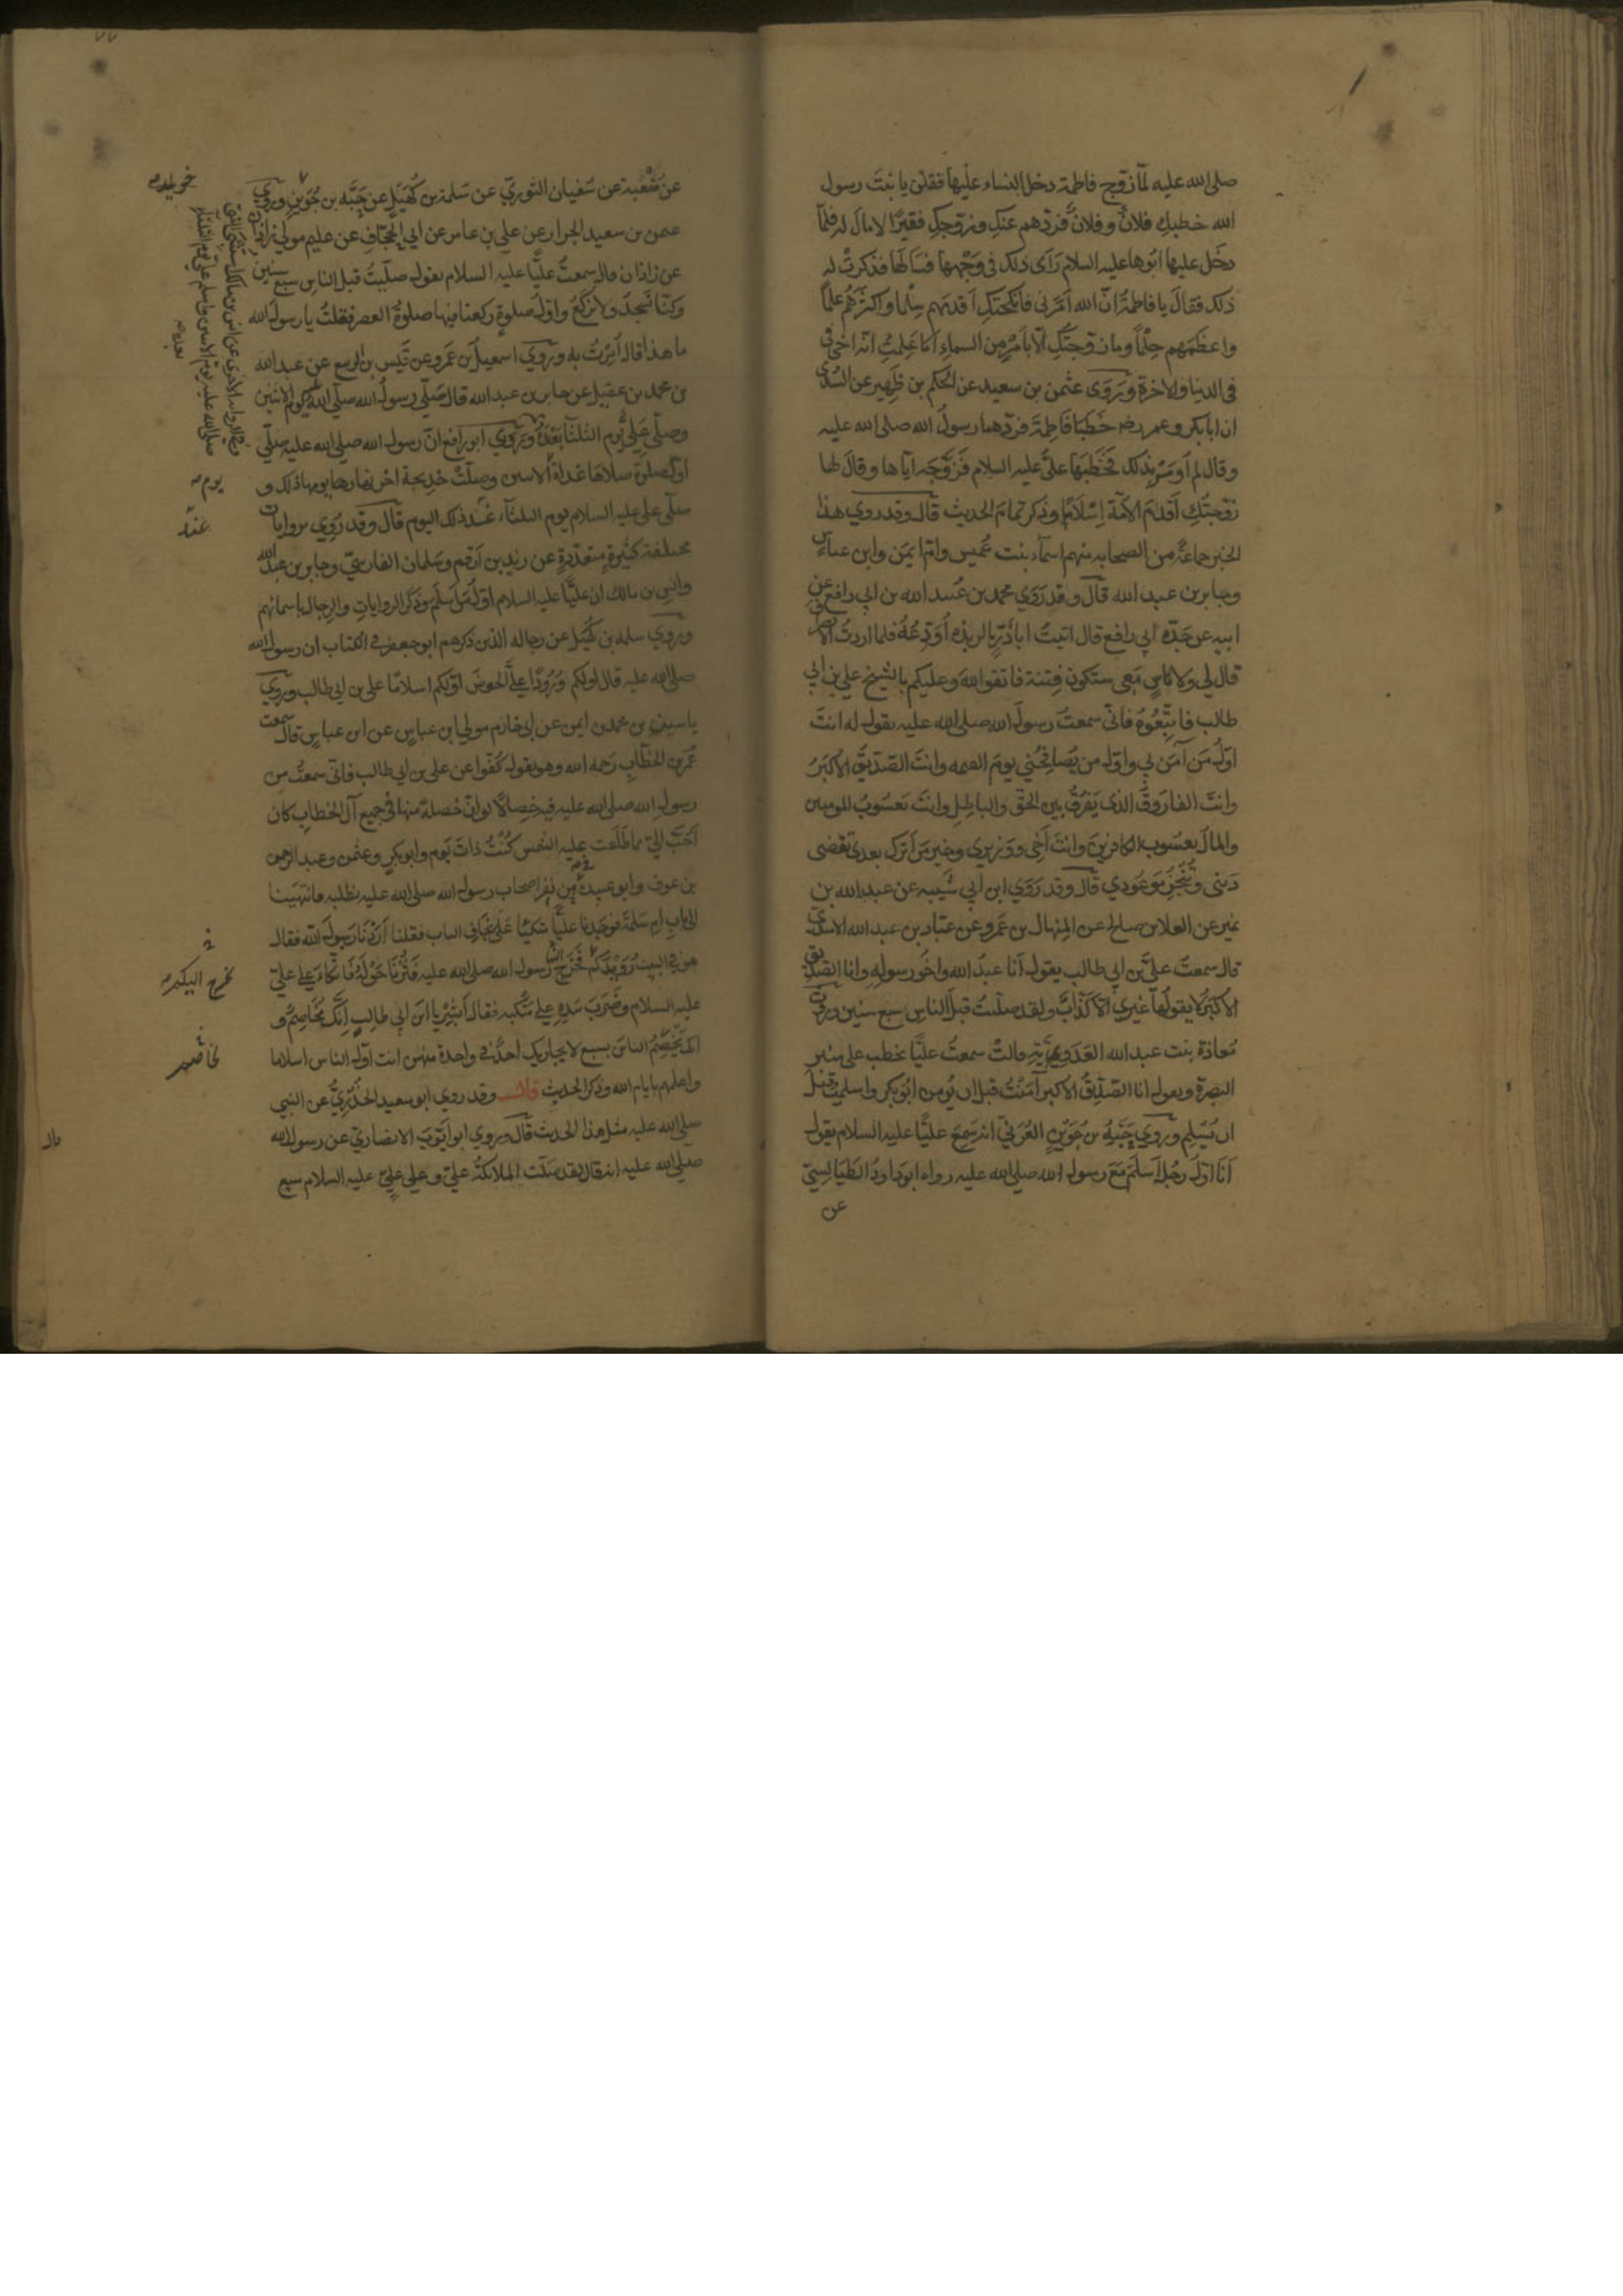 صلى الله عليه لما زوج فاطمة دخل النساء عليها فقلن يا بنت رسول
الله خطبك فلان وفلان فردهم عنك وزوجك فقيرا لا مال له فلما
دخل عليها ابوها عليه السلام رأى ذلك في وجهها فسألها فذكرت له
ذلك فقال يا فاطمة ان الله امرني فانكحتك اقدمهم سلما واكثرهم علما
واعظمهم حلما وما زوجتك الا بامر من السماء اما علمت انه اخي
في الدنيا والاخرة وروى عثمن بن سعيد عن الحكم بن ظهير عن السدي
ان ابا بكر وعمر رضه خطبا فاطمة فردهما رسول الله صلى الله عليه
وقال لم اومر بذلك فخطبها علي عليه السلام فزوجه اياها وقال لها
زوجتك اقدم الامة اسلاما وذكر تمام الحديث قال وقد روي هذا
الخبر جماعة من الصحابه منهم اسماء بنت عميس وام ايمن وابن عباس
وجابر بن عبد الله قال وقد روي محمد بن عبيد الله بن ابي رافع عن
ابيه عن جده ابي رافع قال اتيت ابا ذر بالربذه اودعه فلما اردت الانصراف
قال لي ولاناس معي ستكون فتنة فاتقوا الله وعليكم بالشيخ علي بن ابي
طالب فاتبعوه فاني سمعت رسول الله صلى الله عليه يقول له انت
اول من آمن بي واول من يصافحني يوم القيمه وانت الصديق الاكبر
وانت الفاروق الذي يفرق بين الحق والباطل وانت يعسوب المومنين
والمال يعسوب الكافرين وانت اخي ووزيري وخير من اترك بعدي تقضى
ديني وتنجز موعودي قال وقد روي ابن ابي شيبه عن عبد الله بن
نمير عن العلا بن صالح عن المنهال بن عمرو عن عباد بن عبد الله الاسدي
قال سمعت علي بن ابي طالب يقول انا عبد الله واخو رسوله وانا الصديق
الاكبر لا يقولها غيري الا كذاب ولقد صليت قبل الناس سبع سنين وروت
معاذة بنت عبد الله العدوية قالت سمعت عليا يخطب على منبر
البصرة ويقول انا الصديق الاكبر آمنت قبل ان يومن ابو بكر واسلمت قبل
ان يسلم وروي حبه بن جوين العرني انه سمع عليا عليه السلام يقول
انا اول رجل اسلم مع رسول الله صلى الله عليه رواه ابو داود الطيالسي
عن
عن شعبة عن سفيان الثوري عن سلمة بن كهيل عن حبه بن جوين وروي
عثمن بن سعيد الجرار عن علي بن عامر عن ابي الجحاف عن عليم مولي زاذان
عن زاذان قال سمعت عليا عليه السلام يقول صليت قبل الناس سبع سنين
وكنا نسجد ولا نركع واول صلوة ركعنا فيها صلوة العصر فقلت يا رسول الله
ما هذا قال امرت به وروي اسمعيل بن عمرو عن قيس بن الربيع عن عبد الله
بن محمد بن عقيل عن جابر بن عبد الله قال صلى رسول الله صلى الله عليه يوم الاثنين
وصلى علي يوم الثلثا بعده وروي ابو رافع ان رسول الله صلى الله عليه صلى
اول صلوة صلاها غداة الاثنين وصلت خديجة اخر نهارها يومها ذلك و
صلى علي عليه السلام يوم الثلثاء غد ذلك اليوم قال وقد روي بروايات
مختلفة كثيرة متعددة عن زيد بن ارقم وسلمان الفارسي وجابر بن عبد الله
وانس بن مالك ان عليا عليه السلام اول من اسلم وذكر الروايات والرجال باسمائهم
وروي سلمه بن كهيل عن رجاله الذين ذكرهم ابو جعفر في الكتاب ان رسول الله
صلى الله عليه قال اولكم ورودا على الحوض اولكم اسلاما علي بن ابي طالب وروي
ياسين بن محمد بن ايمن عن ابي خازم مولي ابن عباس عن ابن عباس قال سمعت
عمر بن الخطاب رحمه الله وهو يقول كفوا عن علي بن ابي طالب فاني سمعت من
رسول الله صلى الله عليه فيه خصالا لو ان خصلة منها في جميع آل الخطاب كان
احب الي مما طلعت عليه الشمس كنت ذات يوم وابو بكر وعثمن وعبد الرحمن
بن عوف وابو عبيدة في نفر من اصحاب رسول الله صلى الله عليه نطلبه فانتهينا
الى باب ام سلمة فوجدنا عليا متكئا على نجاف الباب فقلنا اردنا رسول الله فقال
هو في البيت رويدكم فخرج الينا رسول الله صلى الله عليه فثرنا حوله فاتكأ على علي
عليه السلام وضرب بيده على منكبه فقال ابشر يا ابن ابي طالب انك مخاصم و
انك تخصم الناس بسبع لا يجاريك احد في واحدة منهن انت اول الناس اسلاما
واعلمهم بايام الله وذكر الحديث قال وقد روي ابو سعيد الخدري عن النبي
صلى الله عليه مثل هذا الحديث قال وروي ابو ايوب الانصاري عن رسول الله
صلى الله عليه انه قال لقد صلت الملائكة علي وعلى علي عليه السلام سبع
يوم
غد
نخرج اليكم
مخاصم